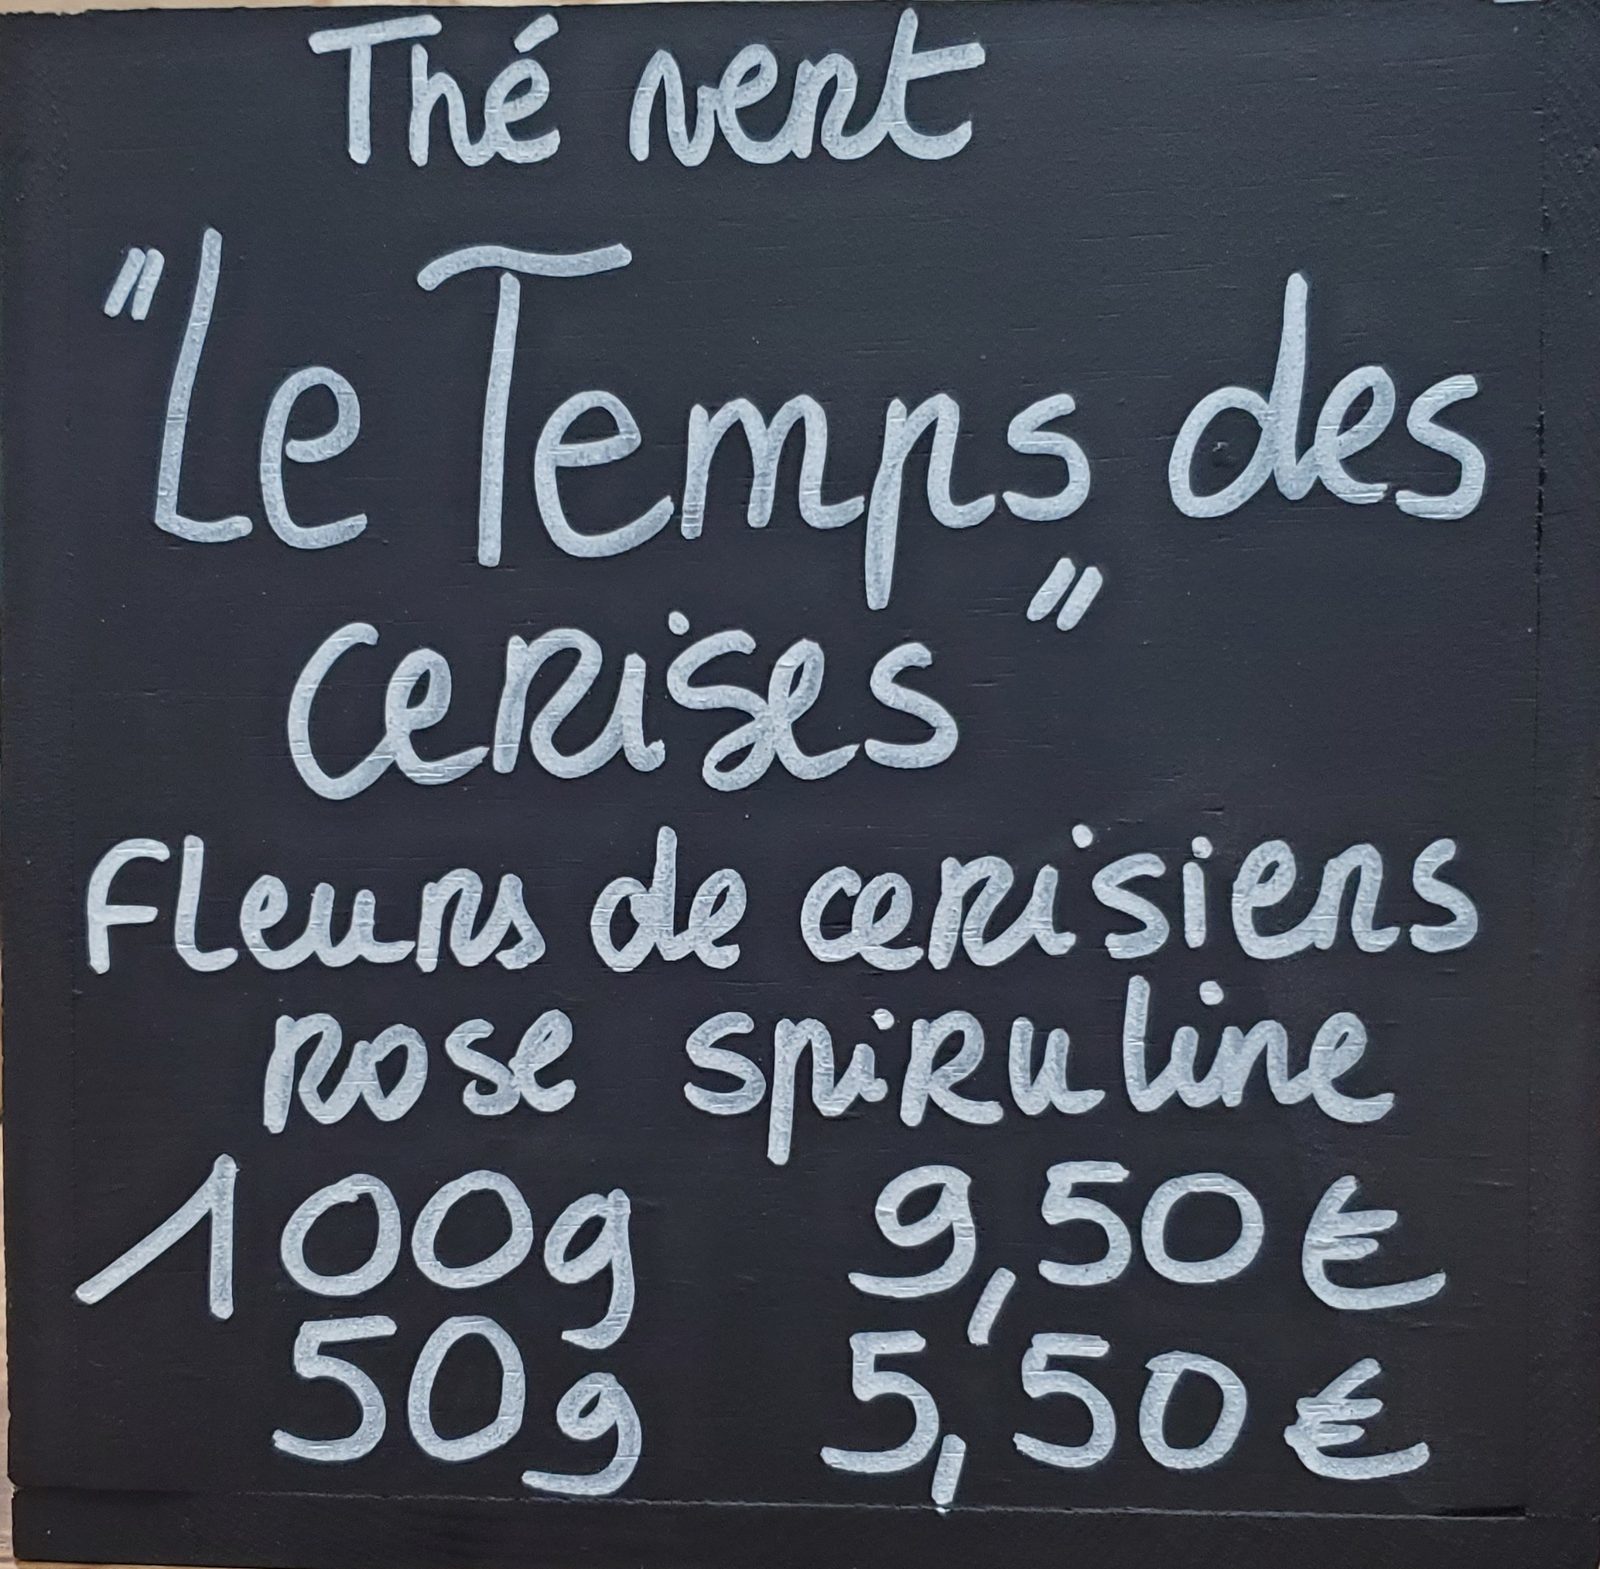 Thé vert
"Le Temps des
cerises"
Fleurs de cerisiers
rose spiruline
100g 9,50€
50g 5,50€